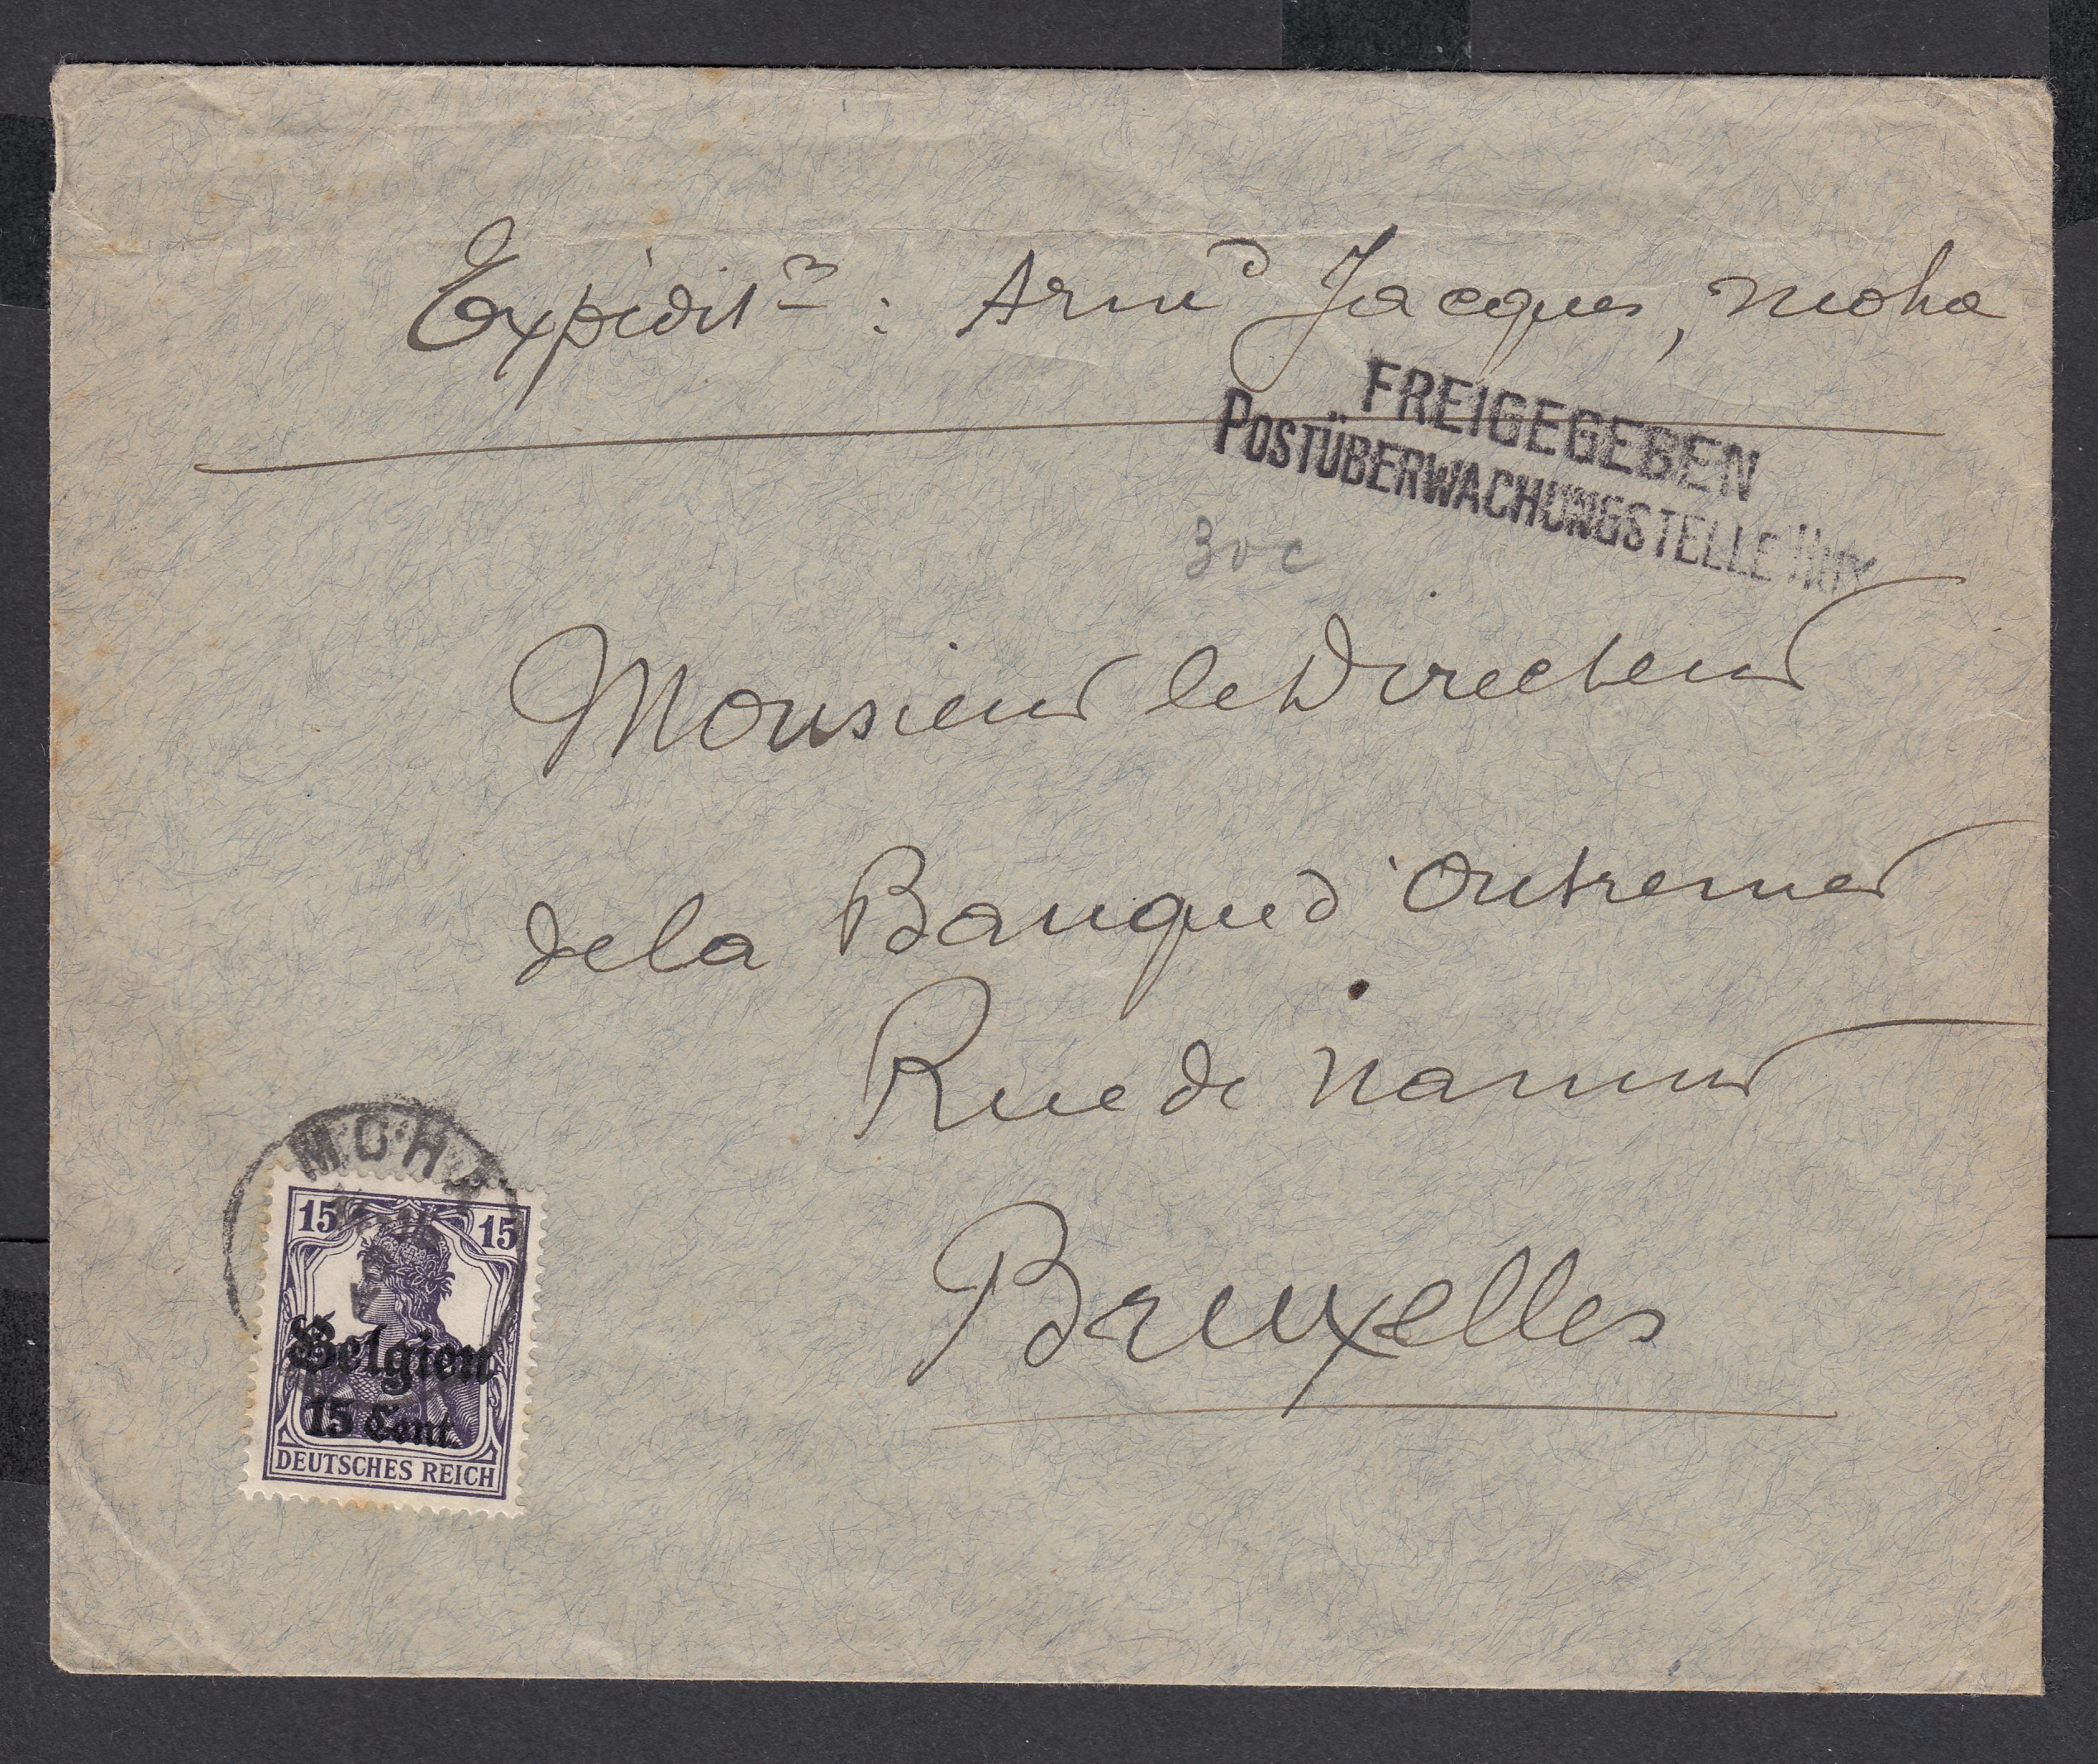 Expédit^r : Arm^d Jacques, Moha
FREIGEGEBEN
POSTÜBERWACHUNGSTELLE HUY
30 c
Monsieur le Directeur
de la Banque d'Outremer
Rue de Namur
Bruxelles
MOHA
15 15
Belgien
15 Cent.
DEUTSCHES REICH